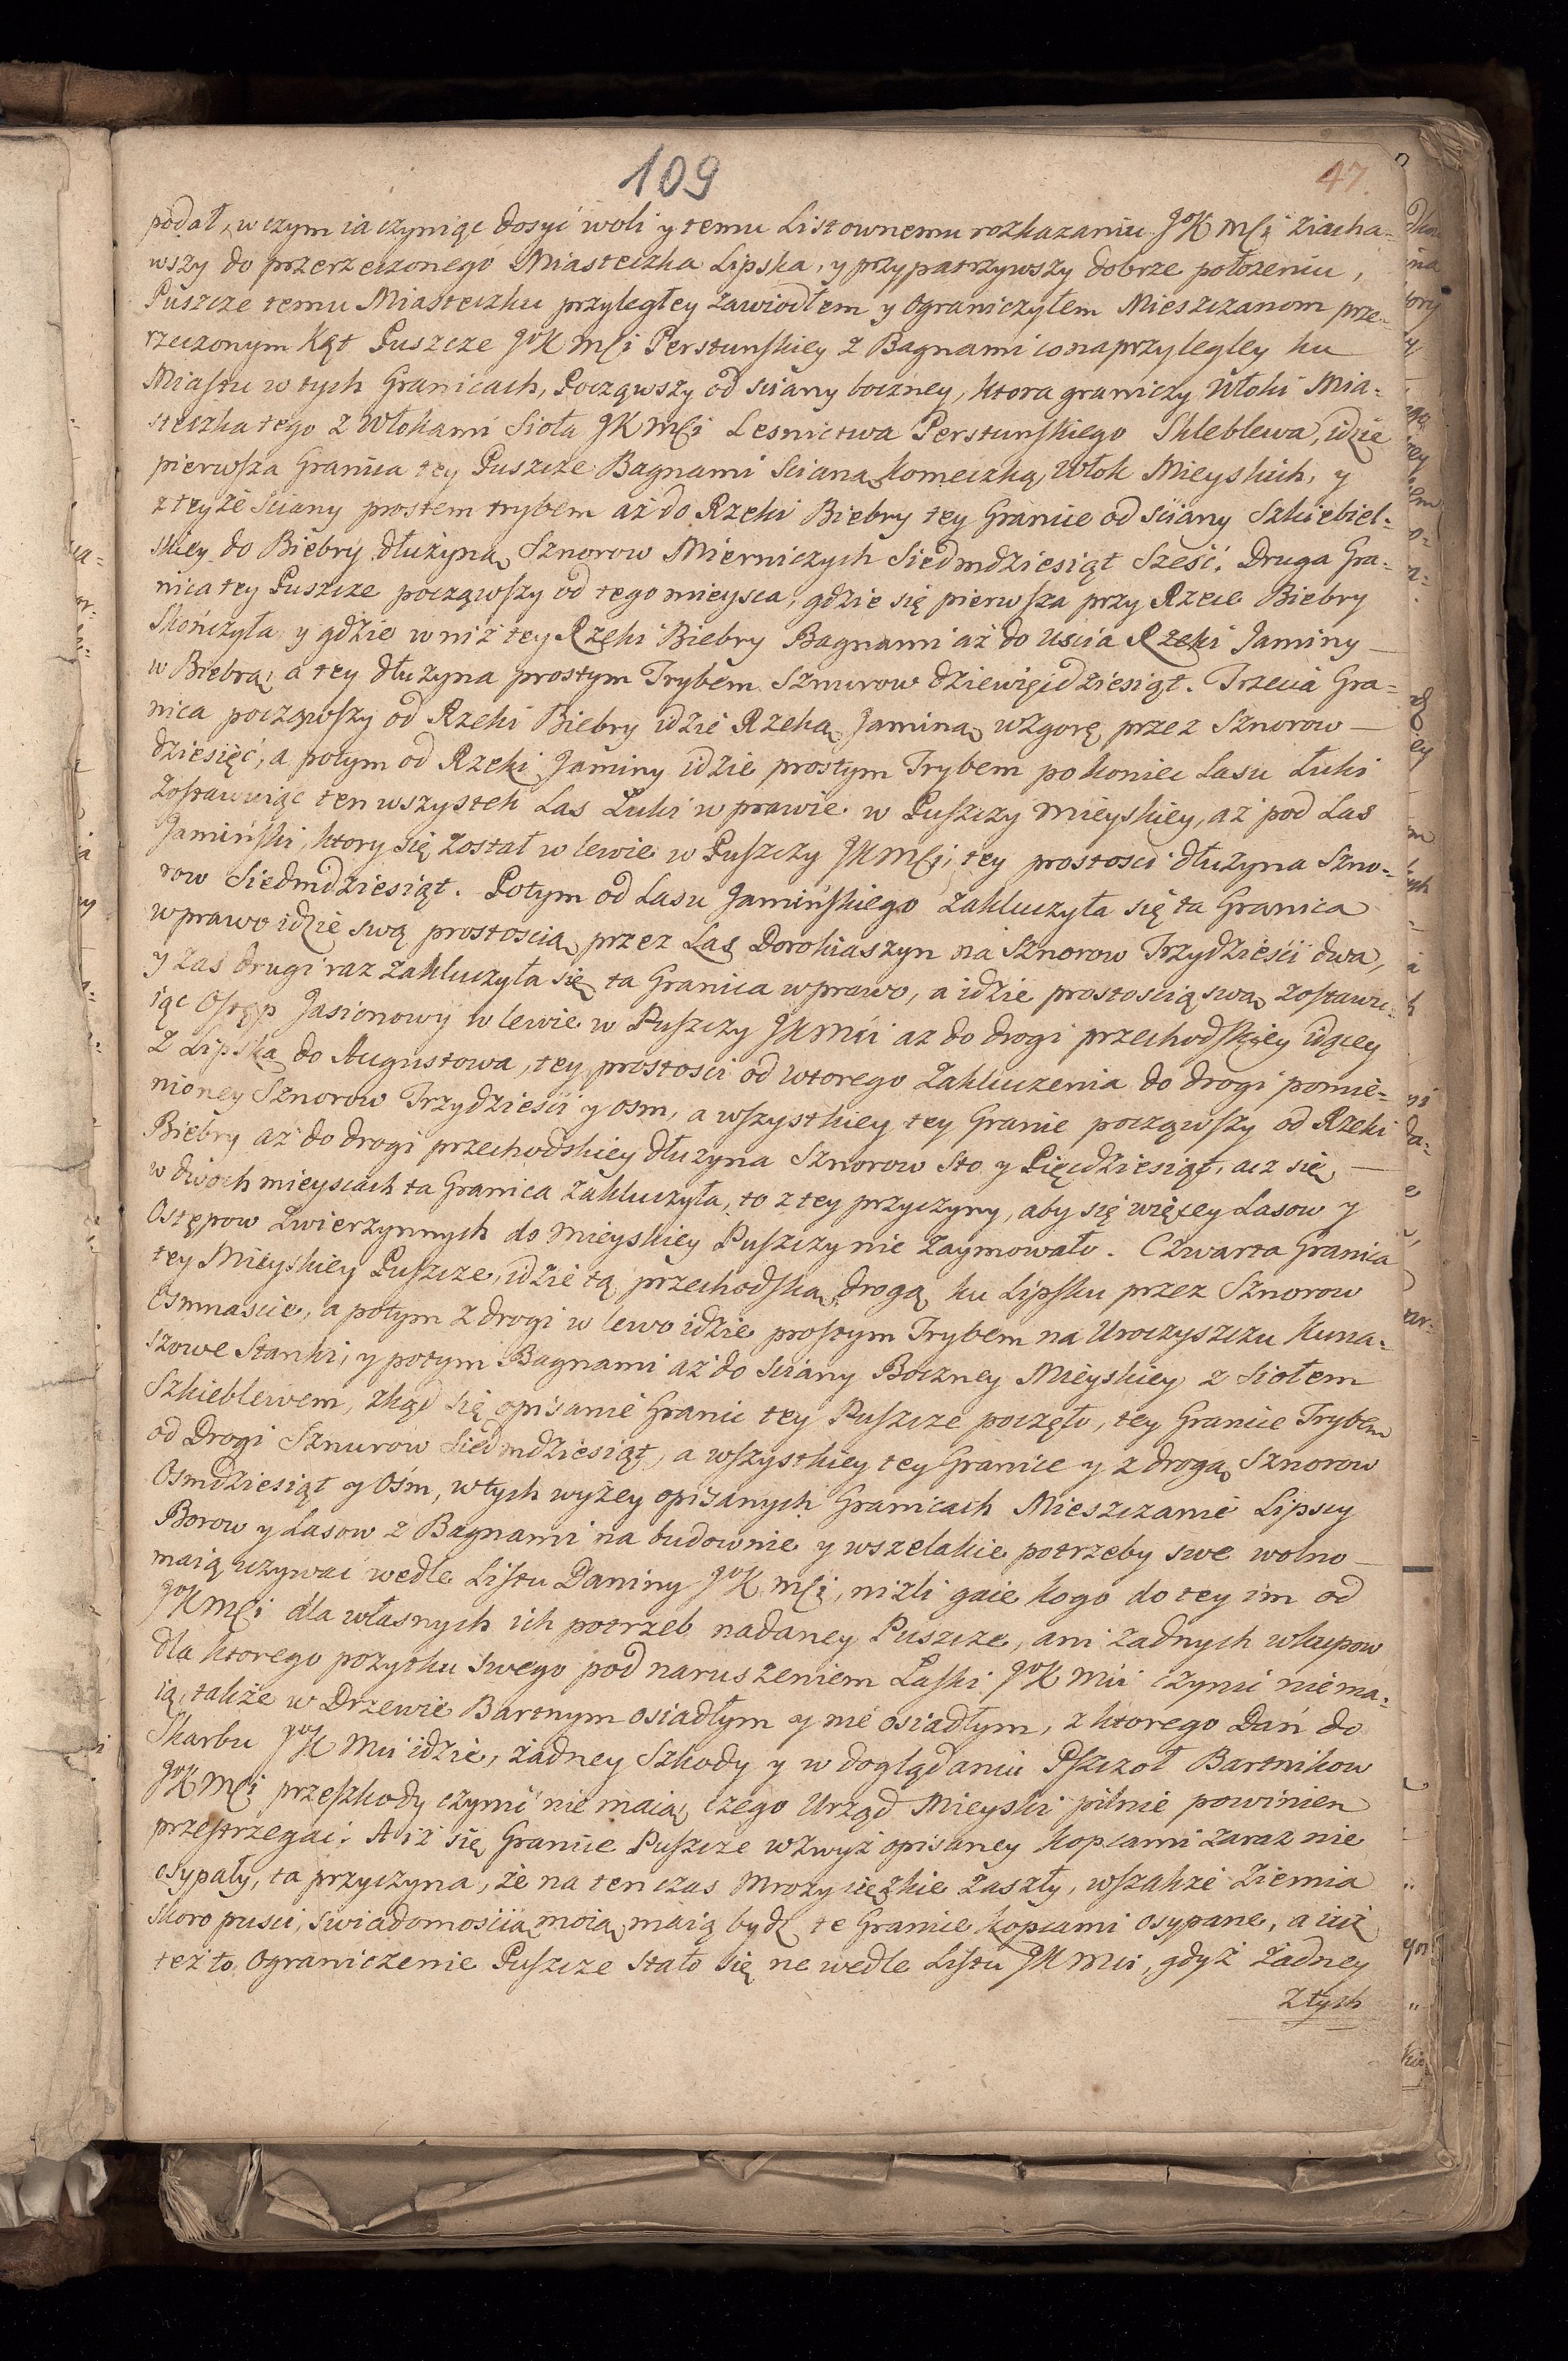 109
47.
podał, w czym ia czyniąc dosyć woli y temu Listownemu rozkazaniu JoK Mſci ziacha-
wszy do przerzeczonego Miasteczka Lipska, y przypatrzywszy dobrze położeniu,
Puszcze temu Miasteczku przyległey zawiodłem y Ograniczyłem Mieszczanom prze-
rzeczonym Kąt Puszcze JoK Mſci Perstunſkiey z Bagnami co naprzyległey ku
Miaſtu w tych Granicach, Począwszy od sciany boczney, ktora graniczy Włoki Mia-
steczka tego z Włokami Sioła JK Mſci Lesnictwa Perstunſkiego Skleblewa, idzie
pierwſza Granica tey Puszcze Bagnami Scianą komeczką Włok Mieyskich, y
z teyże Sciany prostem trybem aż do Rzeki Biebry tey Granice od sciany Szkiebiel-
skiey do Biebry dłużyną Sznorow Mierniczych Siedmdziesiąt Sześć. Druga Gra-
nica tey Puszcze począwſzy od tego mieysca, gdzie się pierwſza przy Rzece Biebry
Skończyła y gdzie w niż tey Rzeki Biebry Bagnami aż do uscia Rzeki Jaminy
w Biebrą, a tey dłużyna prostym Trybem Sznurow dziewięćdziesiąt. Trzecia Gra-
nica począwſzy od Rzeki Biebry idzie Rzeką Jaminą wzgorę przez Sznorow
dziesięć, a potym od Rzeki Jaminy idzie prostym Trybem po koniec Lasu Łuki
Zoſtawuiąc ten wszystek Las Łuki w prawie w Puſzczy Mieyskiey, aż pod Las
Jamińſki, ktory się został w lewie w Puſzczy JK Mſci, tey prostosci dłużyna Szno-
row Siedmdziesiąt. Potym od Lasu Jamińſkiego zakluczyła się ta Granica
w prawo idzie swą prostoscią przez Las Dorokiaszyn na Sznorow Trzydzieści dwa,
y zas drugi raz zakluczyła się ta Granica w prawo, a idzie prostoscią swą zoſtawu-
iąc Oſtęp Jasionowy w lewie w Puſzczy JK Mci aż do drogi przechodſkiey idącey
z Lipska do Augustowa, tey prostosci od wtorego Zakluczenia do drogi pomie-
nioney Sznorow Trzydzieści y osm, a wſzystkiey tey Granie począwſzy od Rzeki
Biebry aż do drogi przechodskiey dłużyna Sznorow Sto y Pięcdziesiąt, acz się
w dwoch mieyscach ta Granica zakluczyła, to z tey przyczyny, aby się więcey Lasow y
Ostępow Zwierzynnych do Mieyskiey Puſzczy nie zaymowało. Czwarta Granica
tey Mieyskiey Puſzcze, idzie tą przechodſką drogą ku Lipſku przez Sznorow
Osmnascie, a potym z drogi w lewo idzie proſtym Trybem na Uroczyszczu Kuna-
szowe Stanki, y potym Bagnami aż do Sciany Boczney Mieyskiey z Siołem
Szkieblewem, zkąd się opisanie Granic tey Puſzcze poczęło, tey Granice Trybem
od Drogi Sznurow Siedmdziesiąt, a wſzystkiey tey Granice y z drogą Sznorow
Osmdziesiąt y Ośm, w tych wyżey opisanych Granicach Mieszczanie Lipscy
Borow y Lasow z Bagnami na budownie y wszelakie potrzeby swe wolno
maią używać wedle Liſtu Daniny JoK Mſci, niżli gaie kogo do tey im od
JoK Mſci dla własnych ich potrzeb nadaney Puszcze, ani żadnych wkupow
dla ktorego pożytku swego pod naruszeniem Łaſki JoK Mci czynić niema-
ią, także w Drzewie Bartnym osiadłym y nie osiadłym, z ktorego Dań do
Skarbu JoK Mci idzie, żadney Szkody y w doglądaniu Pſzczoł Bartnikow
JoK Mſci przeſzkody czynić nie maią, czego Urząd Mieyski pilnie powinien
przeſtrzegać. A iż się Granice Puſzcze wzwyż opisaney kopcami zaraz nie
osypały, ta przyczyna, że na ten czas Mrozy ciężkie zaszły, wſzakże Ziemia
skoro puści, swiadomoscią moią maią bydź te Granice kopcami osypane, a iż
też to Ograniczenie Puſzcze stało się nie wedle Liſtu JK Mci, gdyż żadney
Złych